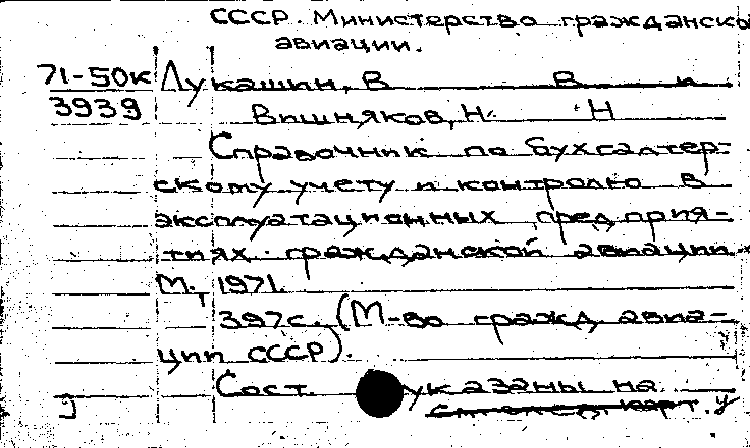 СССР. Министерство гражданско
авиации.
71-50к Лукашин, В В и
3939 Вишняков, Н. Н
Справочник по бухгалтер-
скому учету и контролю в
эксплуатационных предприя-
тиях гражданской авиации.
М., 1971.
397с. (М-во гражд. авиа-
ции СССР).
Сост. указаны на